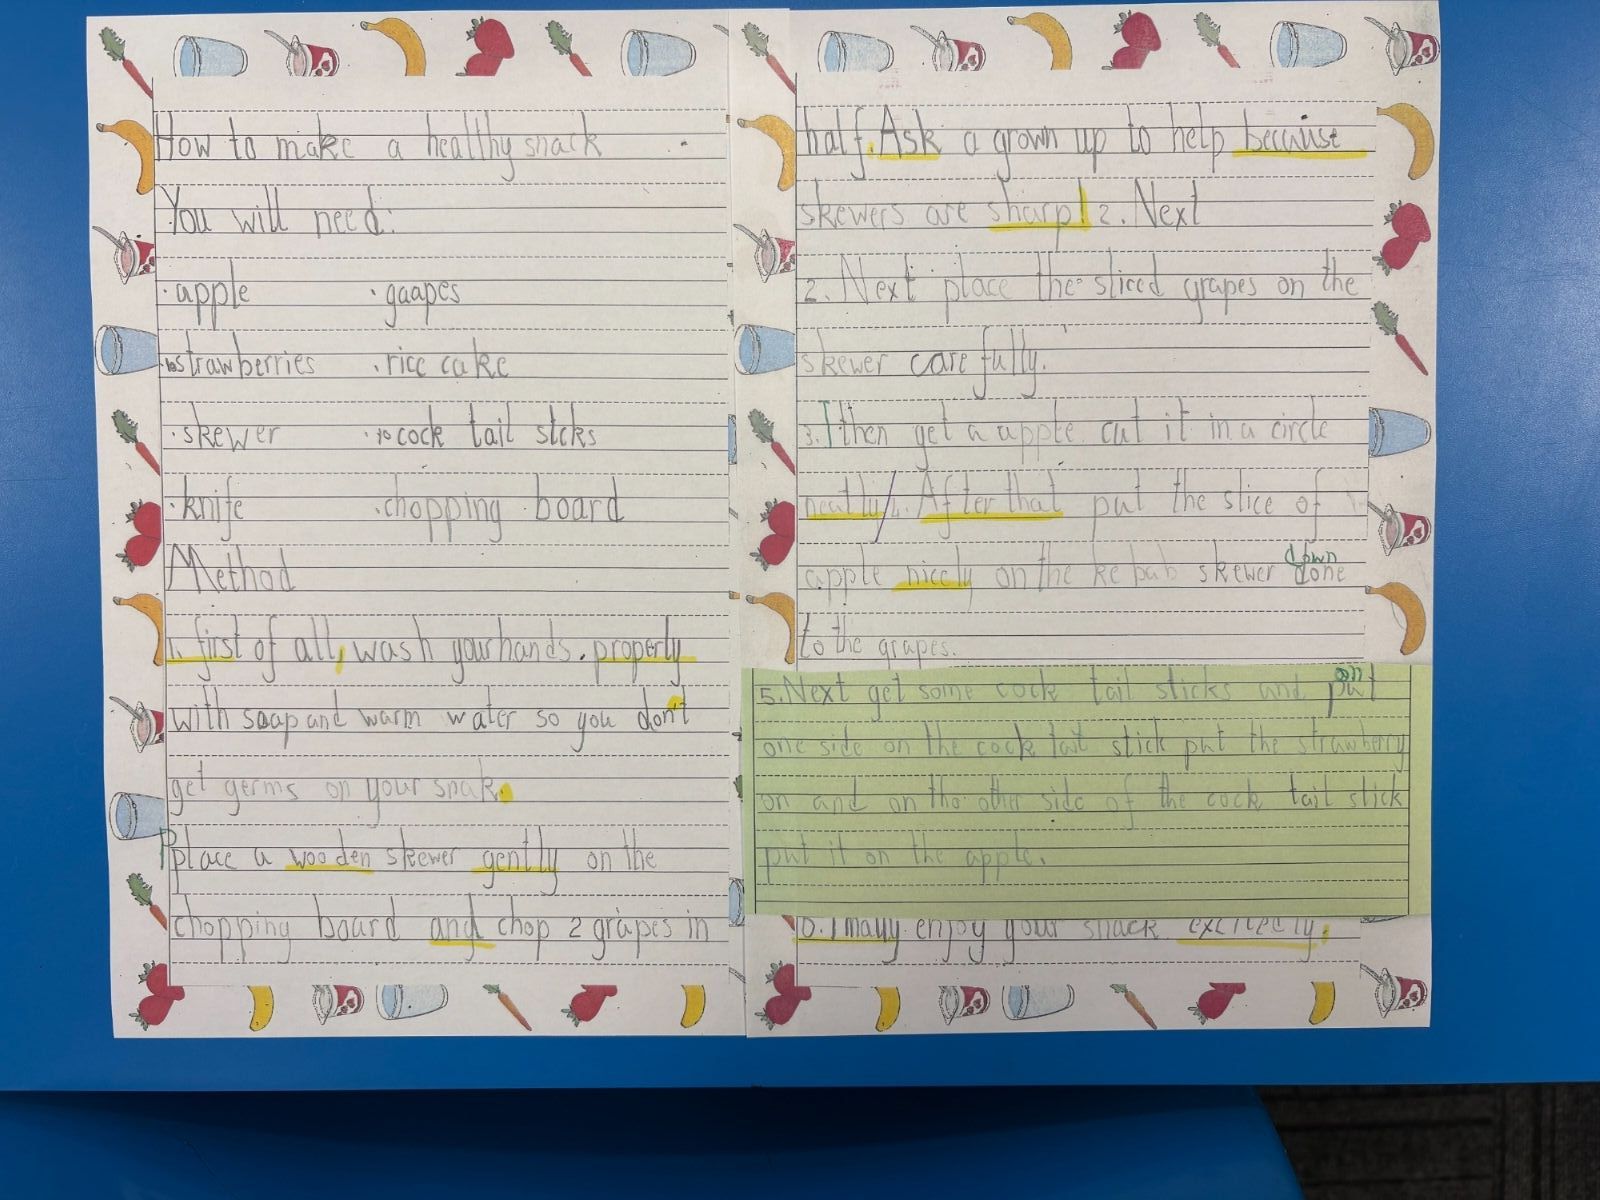 How to make a healthy snack
You will need:
· apple · gaapes
· strawberries · rice cake
· skewer · cock tail stcks
· knife · chopping board
Method
1. first of all, wash your hands. properly
with soap and warm water so you don't
get germs on your snak.
Place a wooden skewer gently on the
chopping board and chop 2 grapes in
half. Ask a grown up to help because
skewers are sharp! 2. Next
2. Next place the sliced grapes on the
skewer carefully.
3. Then get a apple cut it in a circle
neatly/. After that put the slice of
down
apple nicely on the ke bab skewer done
to the grapes.
on
5. Next get some cock tail sticks and put
one side on the cock tail stick put the strawberry
on and on the other side of the cock tail stick
put it on the apple.
6. Finally enjoy your snack excitedly.